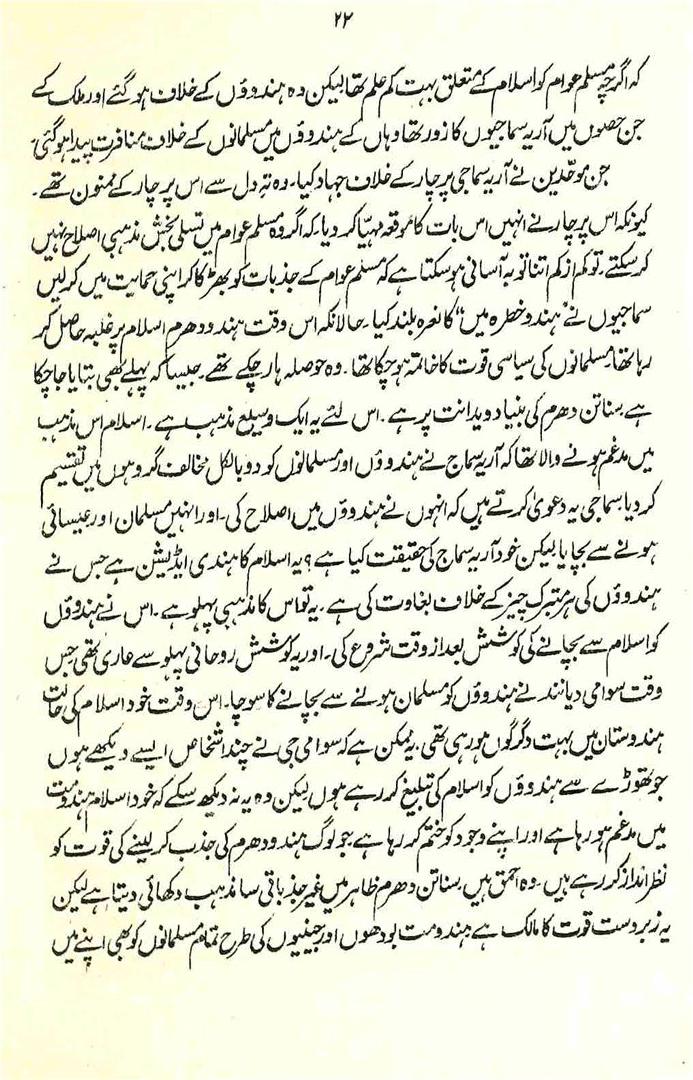 ۲۲
کہ اگرچہ مسلم عوام کو اسلام کے متعلق بہت کم علم تھا لیکن وہ ہندوؤں کے خلاف ہو گئے اور ملک کے
جن حصوں میں آریہ سماجیوں کا زور تھا وہاں کے ہندوؤں میں مسلمانوں کے خلاف منافرت پیدا ہو گئی۔
جن موحّدین نے آریہ سماجی پرچار کے خلاف جہاد کیا۔ وہ تہِ دل سے اس پرچار کے ممنون تھے۔
کیونکہ اس پرچار نے انہیں اس بات کا موقعہ مہیّا کر دیا۔ کہ اگر وہ مسلم عوام میں تسلی بخش مذہبی اصلاح نہیں
کر سکتے۔ تو کم از کم اتنا تو بہ آسانی ہو سکتا ہے کہ مسلم عوام کے جذبات کو بھڑکا کر اپنی حمایت میں کر لیں
سماجیوں نے "ہندو خطرہ میں" کا نعرہ بلند کیا۔ حالانکہ اس وقت ہندو دھرم اسلام پر غلبہ حاصل کر
رہا تھا۔ مسلمانوں کی سیاسی قوت کا خاتمہ ہو چکا تھا۔ وہ حوصلہ ہار چکے تھے۔ جیسا کہ پہلے بھی بتایا جا چکا
ہے سناتن دھرم کی بنیاد ویدانت پر ہے۔ اس لئے یہ ایک وسیع مذہب ہے۔ اسلام اس مذہب
میں مدغم ہونے والا تھا کہ آریہ سماج نے ہندوؤں اور مسلمانوں کو دو بالکل مخالف گروہوں میں تقسیم
کر دیا۔ سماجی یہ دعویٰ کرتے ہیں کہ انہوں نے ہندوؤں میں اصلاح کی۔ اور انہیں مسلمان اور عیسائی
ہونے سے بچایا لیکن خود آریہ سماج کی حقیقت کیا ہے؟ یہ اسلام کا ہندی ایڈیشن ہے جس نے
ہندوؤں کی ہر متبرک چیز کے خلاف بغاوت کی ہے۔ یہ تو اس کا مذہبی پہلو ہے۔ اس نے ہندوؤں
کو اسلام سے بچانے کی کوشش بعد از وقت شروع کی۔ اور یہ کوشش روحانی پہلو سے عاری تھی جس
وقت سوامی دیانند نے ہندوؤں کو مسلمان ہونے سے بچانے کا سوچا۔ اس وقت خود اسلام کی حالت
ہندوستان میں بہت دگرگوں ہو رہی تھی۔ یہ ممکن ہے کہ سوامی جی نے چند اشخاص ایسے دیکھے ہوں
جو تھوڑے سے ہندوؤں کو اسلام کی تبلیغ کر رہے ہوں لیکن وہ یہ نہ دیکھ سکے کہ خود اسلام ہندومت
میں مدغم ہو رہا ہے اور اپنے وجود کو ختم کر رہا ہے جو لوگ ہندو دھرم کی جذب کر لینے کی قوت کو
نظر انداز کر رہے ہیں۔ وہ احمق ہیں۔ سناتن دھرم ظاہر میں غیر جذباتی سا مذہب دکھائی دیتا ہے لیکن
یہ زبردست قوت کا مالک ہے ہندومت بودھوں اور جینیوں کی طرح تمام مسلمانوں کو بھی اپنے میں